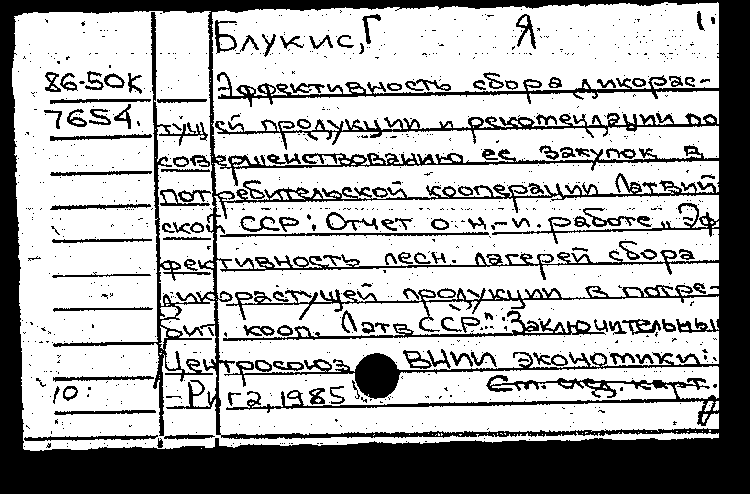 Блукис, Г Я 1.
86-50К Эффективность сбора дикорас-
7654. тущей продукции и рекомендации по
совершенствованию ее закупок в
потребительской кооперации Латвий
ской ССР: Отчет о н.-и. работе „Эф
фективность лесн. лагерей сбора
дикорастущей продукции в потре-
бит. кооп. Латв ССР.": Заключительный
Центросоюз ВНИИ экономики:.
10: - Рига, 1985 См. след. карт.